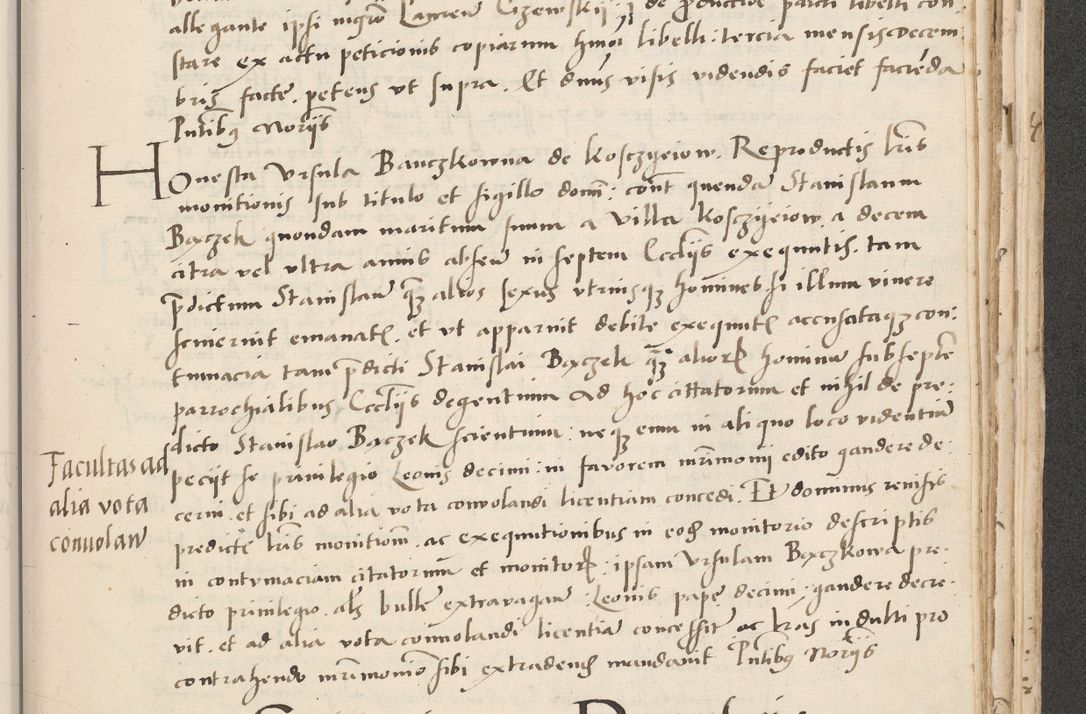 allegante ipsi mgro Lauren Cizewskij et de productioe parti libelli con:
stare ex actu peticionis copiarum hmoi libelli: tercia mensis decem
bris facte, petens ut supra. Et dnus visis videndis faciet facienda
Pntibus Noriis
Honesta Ursula Banczkowna de Kosczyeiow. Reproductis lris
monitionis sub titulo et sigillo domi: cont quendā Stanislaum
Bączek quondam maritum suum a villa Kosczyeiow a decem
citra vel ultra annis absen in septem Eccliis exequutis. tam
p̄dictum Stanislaū q̄z alios sexus utriusqz homines si illum vivere
sciverint emanatꝭ. et ut apparuit debite exequutꝭ accusataqz con:
tumacia tam p̄dicti Stanislai Bączek q̄z alioꝝ hominū sub septē
parrochialibus Eccliis degentium ad hoc cittatorum et nihil de pre:
dicto Stanislao Bączek scientium: neqz enim in aliquo loco videntiū
peciit se privilegio Leonis decimi: in favorem mrimonii edito gaudere de:
cerni. et sibi ad alia vota convolandi licentiam concedi. Et dominus revisis
predictē lris monitioni. ac exequutionibus in eodem monitorio descriptis
in contumaciam citatorum et monitoꝝ: ipsam Ursulam Bączkowā pre:
dicto privilegio. als bulle extravagan Leonis pape decimi: gaudere decre:
vit. et ad alia vota convolandi licentiā concessit ac lras indulti pro
contrahendo mrimonio sibi extradendas mandavit Pntibus Noriis
Facultas ad
alia vota
convolan